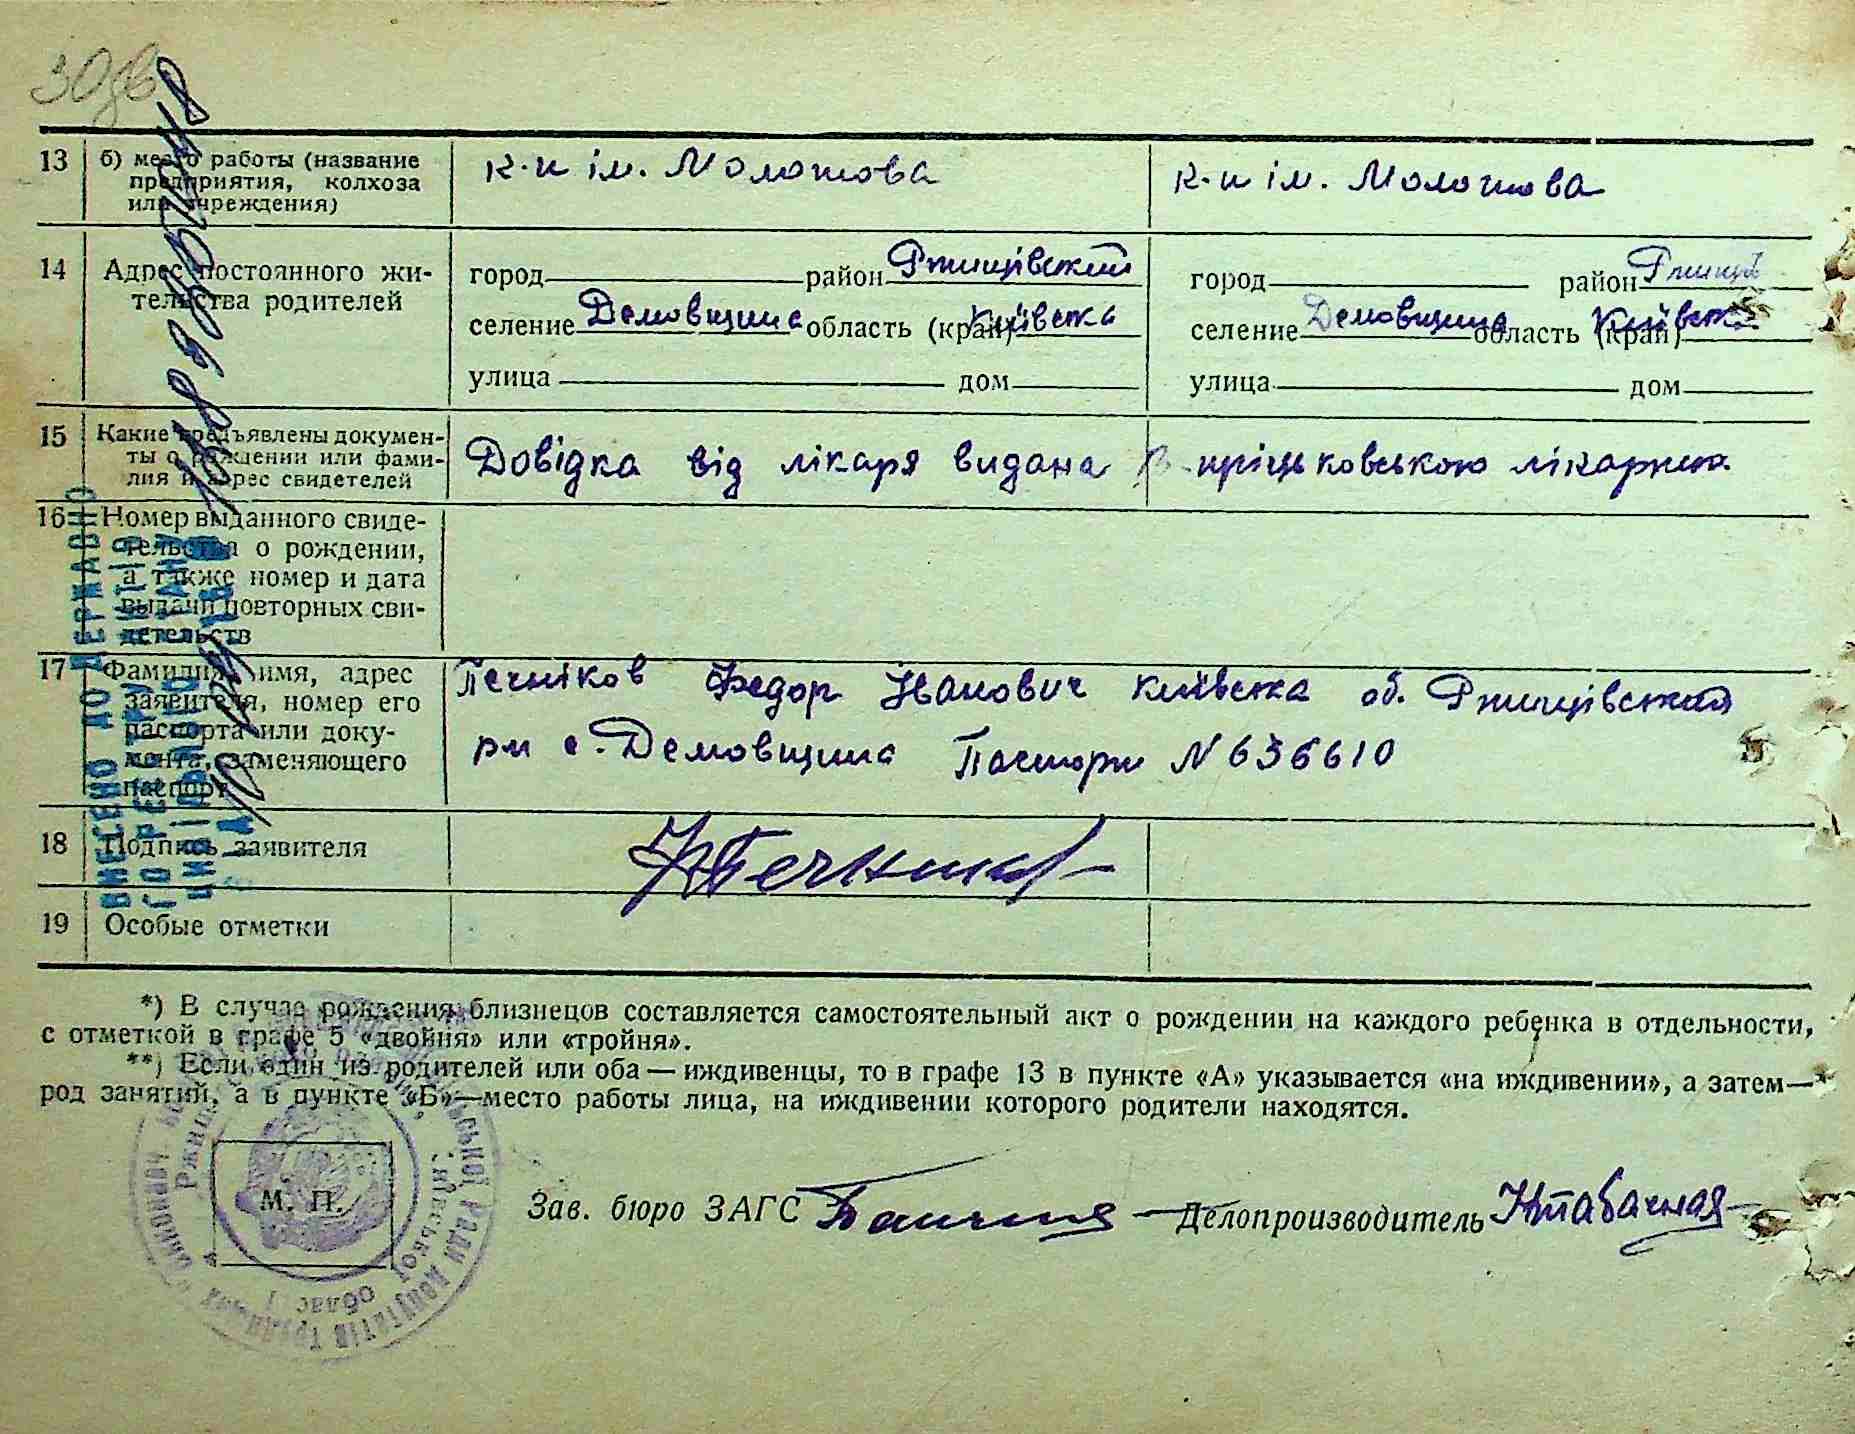 30зв
13 б) место работы (название предприятия, колхоза или учреждения)
к-п ім. Молотова
к-п ім. Молотова
14 Адрес постоянного жительства родителей
город район Ржищівский
селение Демовщина область (край) Київска
улица дом
город район Ржищі
селение Демовщина область (край) Київск
улица дом
15 Какие предъявлены документы о рождении или фамилия и адрес свидетелей
Довідка від лікаря видана лікарнею
16 Номер выданного свидетельства о рождении, а также номер и дата выдачи повторных свидетельств
17 Фамилия, имя, адрес заявителя, номер его паспорта или документа, заменяющего паспорт
Печніков Федор Іванович Київска об. Ржищівский
рн с. Демовщина Паспорт N 636610
18 Подпись заявителя
19 Особые отметки
*) В случае рождения близнецов составляется самостоятельный акт о рождении на каждого ребенка в отдельности,
с отметкой в графе 5 «двойня» или «тройня».
**) Если один из родителей или оба — иждивенцы, то в графе 13 в пункте «А» указывается «на иждивении», а затем—
род занятий, а в пункте «Б»—место работы лица, на иждивении которого родители находятся.
М. П.
Зав. бюро ЗАГС Делопроизводитель Табачная
ВНЕСЕНО ДО ДЕРЖАВНО
ГО РЕЄСТРУ